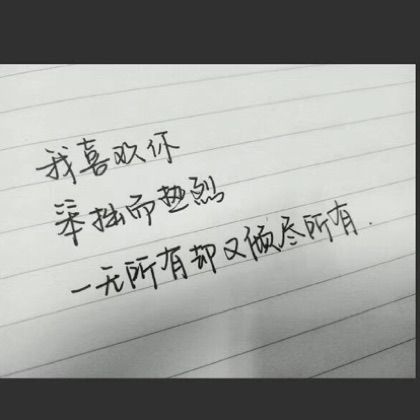 我喜欢你
笨拙而热烈
一无所有却又倾尽所有.